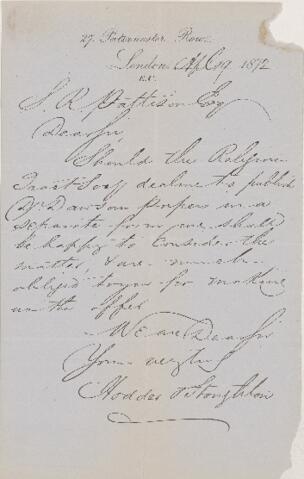 27 Paternoster Row.
London Apl 19 1872
E.C.
S. R. Pattison Esq
Dear Sir,
Should the Religious
Tract Socy decline to publish
Dr Dawson papers in a
separate form we shall
be happy to consider the
matter, & are much
obliged to you for making
us the offer
We are Dear Sir
Yours very truly
Hodder & Stoughton